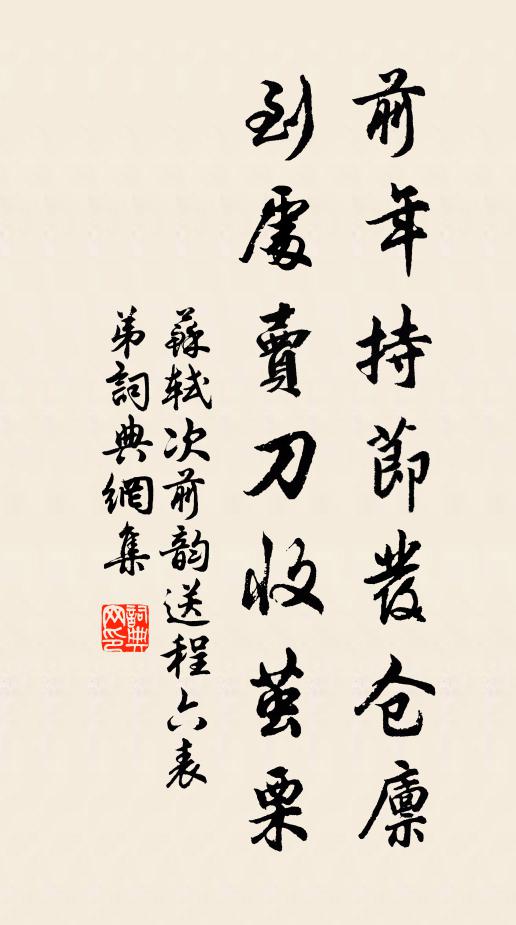 前年持節發仓廪
到處賣刀收茧栗
蘇軾次前韵送程六表
弟詞典網集
詞典
网印